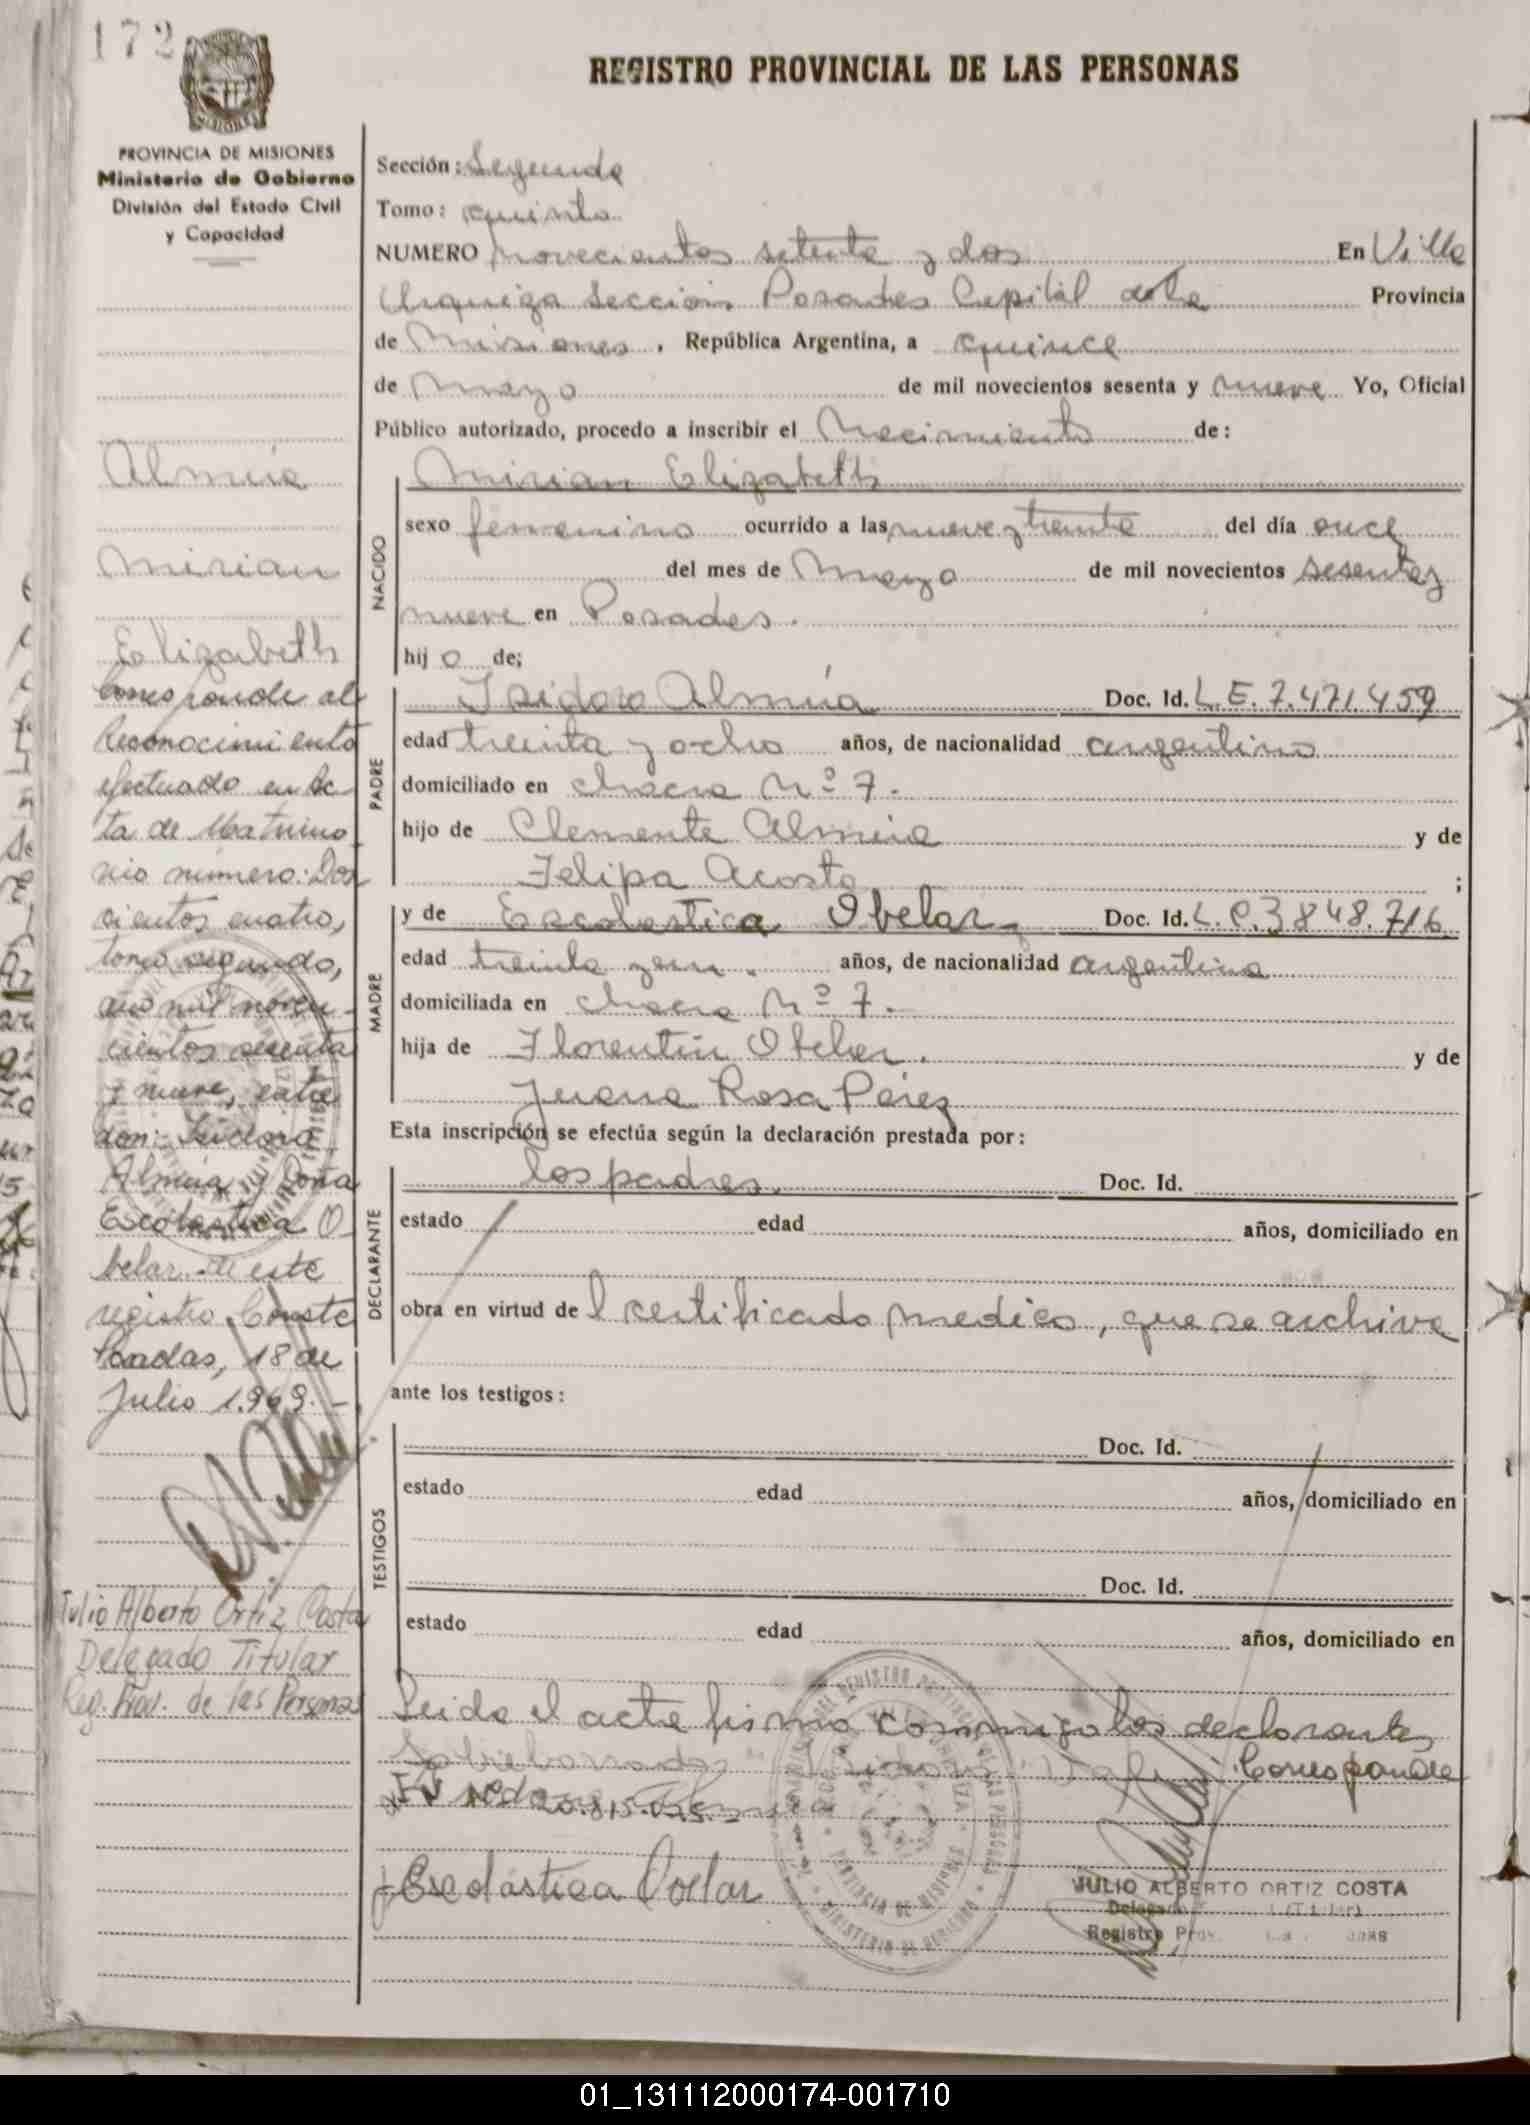 172
REGISTRO PROVINCIAL DE LAS PERSONAS
PROVINCIA DE MISIONES
Ministerio de Gobierno
División del Estado Civil
y Capacidad
Almúa
Mirian
Elizabeth
Corresponde al
Reconocimiento
efectuado en Ac
ta de Matrimo
nio número: Dos
cientos cuatro,
tomo segundo,
año mil noven
cientos sesenta
y nueve, entre
don: Isidoro
Almúa y Doña
Escolastica O
belar. de este
registro. Conste
Posadas, 18 de
Julio 1.969.-
Julio Alberto Ortiz Costa
Delegado Titular
Reg. Prov. de las Personas
Sección: Segunda
Tomo: quinto
NUMERO novecientos setenta y dos En Villa
Urquiza Sección Posadas Capital de la Provincia
de Misiones, República Argentina, a quince
de Mayo de mil novecientos sesenta y nueve Yo, Oficial
Público autorizado, procedo a inscribir el Nacimiento de:
NACIDO
Mirian Elizabeth
sexo femenino ocurrido a las nueve y treinta del día once
del mes de Mayo de mil novecientos sesenta y
nueve en Posadas.
hijo de;
PADRE
Isidoro Almúa Doc. Id. L.E. 7.471.459
edad treinta y ocho años, de nacionalidad argentino
domiciliado en chacra Nº 7.
hijo de Clemente Almúa y de
Felipa Acosta ;
MADRE
y de Escolastica Obelar Doc. Id. L.C. 3848.716
edad treinta y un. años, de nacionalidad argentina
domiciliada en chacra Nº 7.
hija de Florentin Obelar. y de
Juana Rosa Pérez
Esta inscripción se efectúa según la declaración prestada por:
DECLARANTE
los padres. Doc. Id.
estado edad años, domiciliado en
obra en virtud de l certificado medico, que se archiva
ante los testigos:
TESTIGOS
Doc. Id.
estado edad años, domiciliado en
Doc. Id.
estado edad años, domiciliado en
Leida el acta firman conmigo los declarantes
Sobreborrado: Isidoro Vale. Corresponde
Escolastica Ovelar
JULIO ALBERTO ORTIZ COSTA
Delegado (Titular)
Registro Prov.
01_131112000174-001710